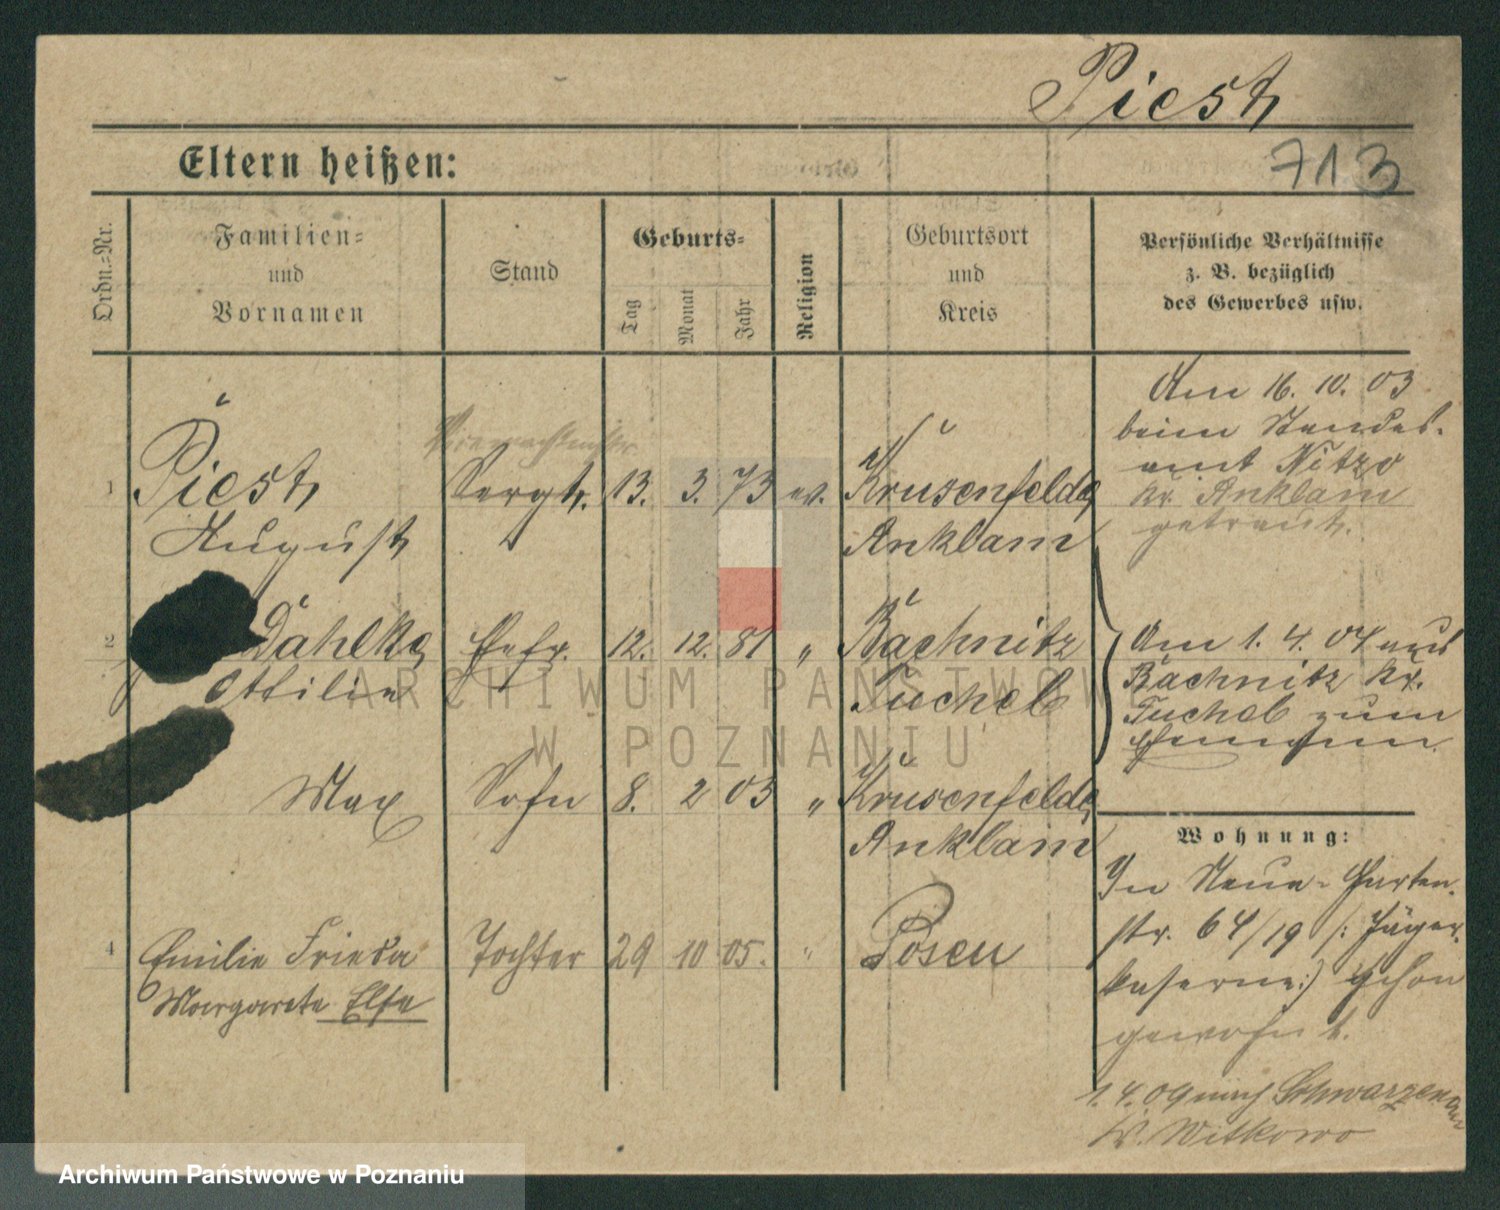 Piest
713
Eltern heißen:
Ordn.-Nr.
Familien-
und
Vornamen
Stand
Geburts-
Tag
Monat
Jahr
Religion
Geburtsort
und
Kreis
Persönliche Verhältnisse
z. B. bezüglich
des Gewerbes usw.
1 Piest Sergt. 13. 3. 73 ev. Krusenfelde
August Anklam
Am 16. 10. 03
beim Standes-
amt Nitzo
Kr. Anklam
getraut.
2 Dahlke Ehefr. 12. 12. 81 " Bachnitz
Ottilie Tuchel
Am 1. 4. 04 aus
Bachnitz Kr.
Tuchel zum
Ehemann.
Max Sohn 8. 2 03 " Krusenfelde
Anklam
4 Emilie Frieda Tochter 29 10 05. " Posen
Margarete Elsa
Wohnung:
In Neue-Garten-
str. 64/19 /: Jäger-
kaserne :/ schon
gewohnt.
1. 4. 09 nach Schwarzenau
Kr. Witkowo
ARCHIWUM PAŃSTWOWE
W POZNANIU
Archiwum Państwowe w Poznaniu